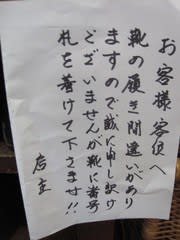 お客様客便へ
靴の履き間違いがあり
ますので誠に申し訳け
ございませんが靴に番号
札を着けて下さませ!!
店主